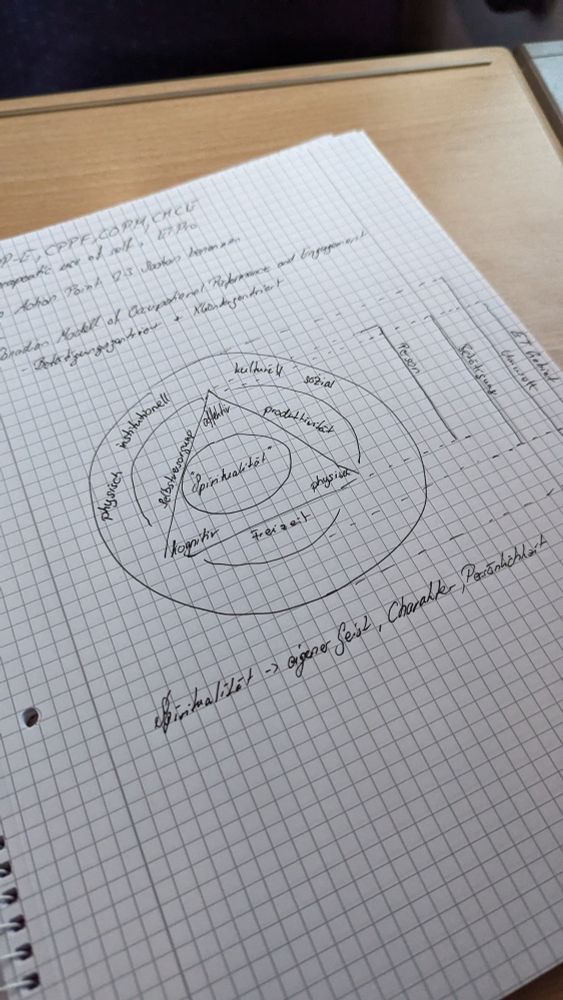 P-E, CPPF, COPM, CMCE
therapeutic use of self, ET Pro
Action Point
Canadian Modell of Occupational Performance and Engagement
- Betätigungszentriert + Klientenzentriert
physisch institutionell kulturell sozial
Selbstversorgung affektiv Produktivität
"Spiritualität"
kognitiv Freizeit physisch
Person
Betätigung
ET Gebiet
Umwelt
Spiritualität -> eigener Geist, Charakter, Persönlichkeit